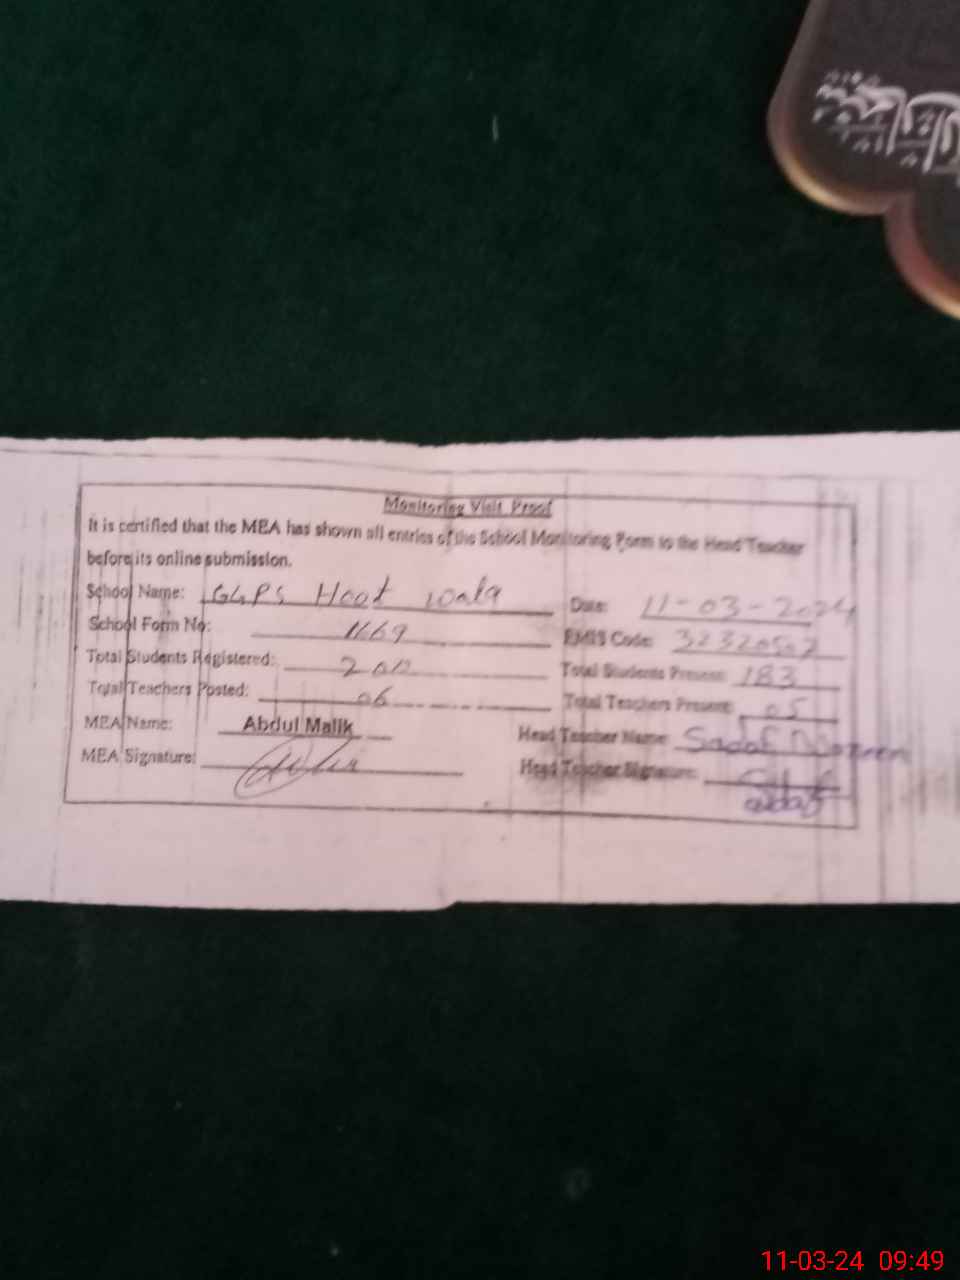 Monitoring Visit Proof
It is certified that the MEA has shown all entries of the School Monitoring Form to the Head Teacher
before its online submission.
School Name: GGPS Hoot wala Date: 11-03-2024
School Form No: 1169 EMIS Code: 32320507
Total Students Registered: 200 Total Students Present: 183
Total Teachers Posted: 06 Total Teachers Present: 05
MEA Name: Abdul Malik Head Teacher Name: Sadaf
MEA Signature: Head Teacher Signature:
11-03-24 09:49